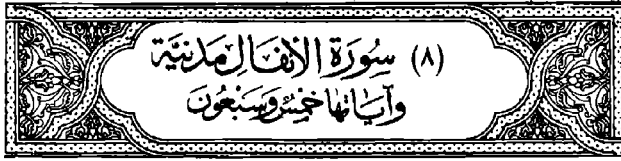 (٨) سُورَة الأنفَال مَدَنيَّة
وَآيَاتهَا خَمْسٌ وَسَبْعُونَ